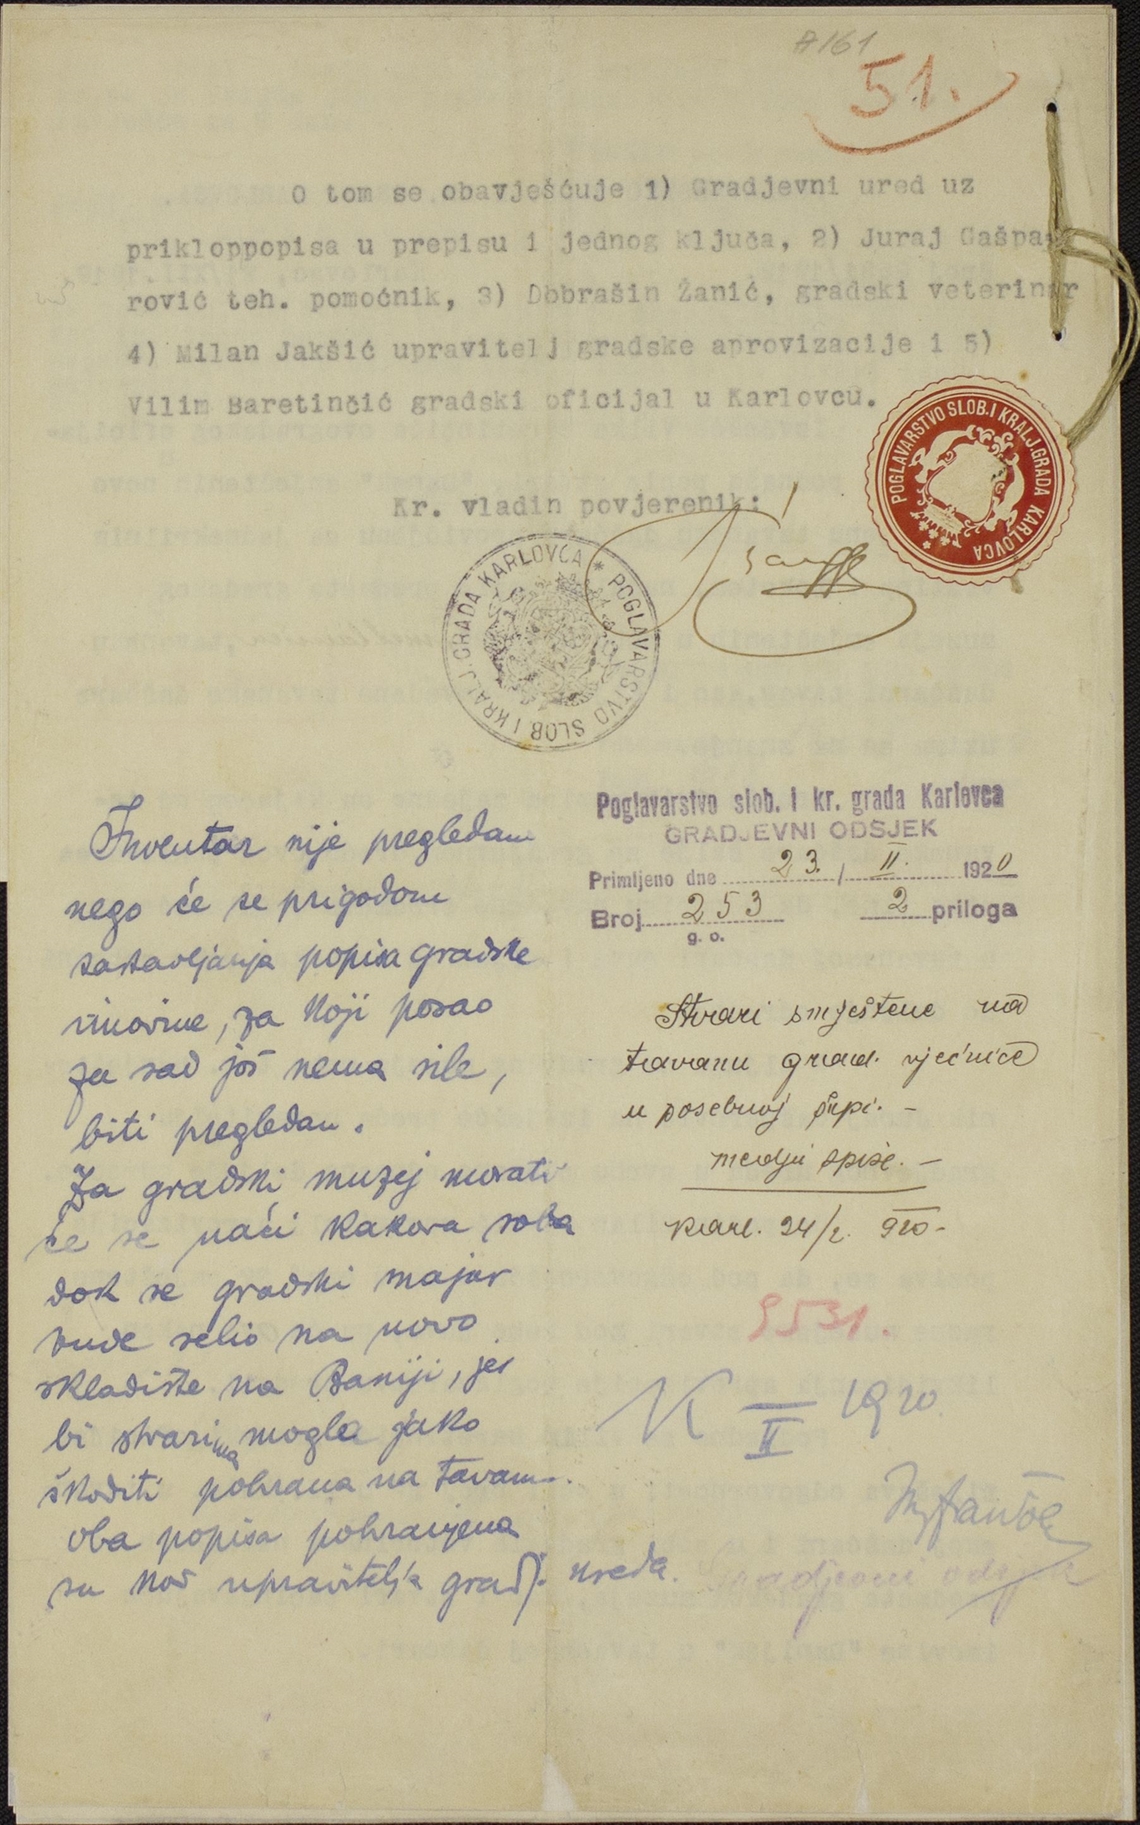 A161
51.
O tom se obavješćuje 1) Gradjevni ured uz
prikloppopisa u prepisu i jednog ključa, 2) Juraj Gašpa-
rović teh. pomoćnik, 3) Dobrašin Žanić, gradski veterinar
4) Milan Jakšić upravitelj gradske aprovizacije i 5)
Vilim Baretinčić gradski oficijal u Karlovcu.
Kr. vladin povjerenik:
POGLAVARSTVO SLOB. I KRALJ. GRADA KARLOVCA
POGLAVARSTVO SLOB I KRALJ. GRADA KARLOVCA *
Poglavarstvo slob. i kr. grada Karlovca
GRADJEVNI ODSJEK
Primljeno dne 23. / II. 1920
Broj 253 2 priloga
g. o.
Inventar nije pregledan
nego će se prigodom
sastavljanja popisa gradske
imovine, za koji posao
za sad još nema sile,
biti pregledan.
Za gradski muzej morati
će se naći kakova soba
dok se gradski majur
bude selio na novo
skladište na Baniji, jer
bi stvarima mogla jako
škoditi pohrana na tavanu.
oba popisa pohranjena
su kod upravitelja gradj. ureda.
Stvari smještene na
tavanu grad. vjećnice
u posebnoj
medju spise. —
Karl. 24/2. 920-
9531.
K II 1920
Gradjevni odsjek